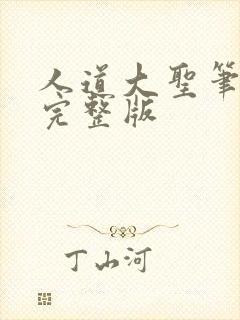 人道大聖筆
完整版
丁山河